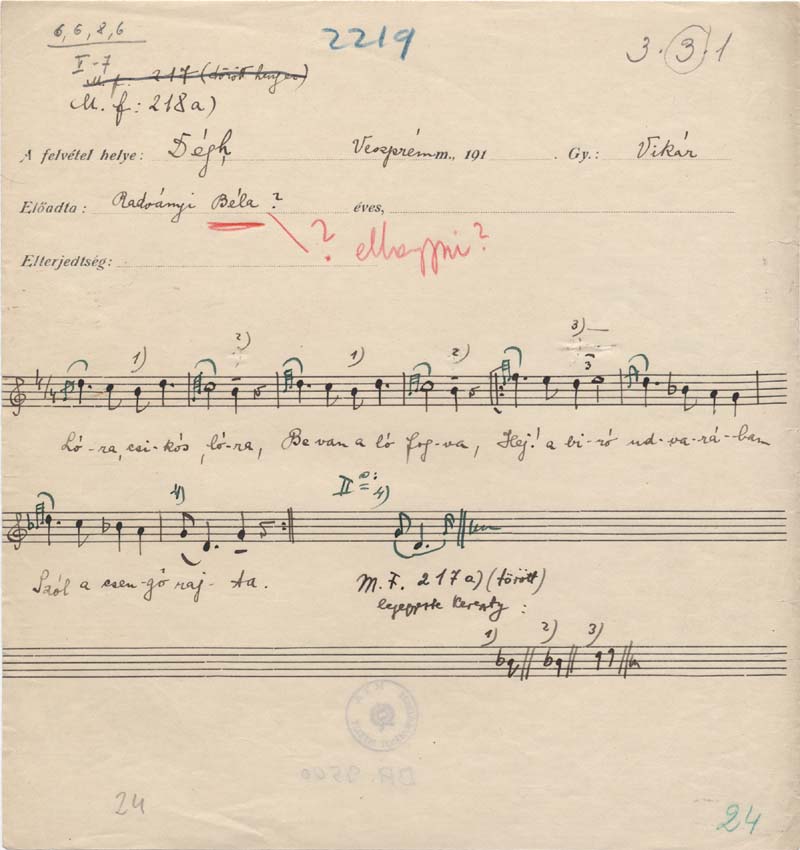 6, 6, 8, 6
2219
3.3.1
I-7
M. f. 217 (törött henger)
M. f: 218a)
A felvétel helye: Dégh, Veszprém m., 191 . Gy.: Vikár
Előadta: Radványi Béla ? éves,
? elhagyni?
Elterjedtség:
1) 2) 1) 2) 3)
3
Ló-ra, csi-kós, ló-ra, Be van a ló fog-va, Hej! a bi-ró ud-va-rá-ban
4) II 4)
Szól a csen-gő raj-ta.
M. F. 217a) (törött)
:
1) 2) 3)
24
24